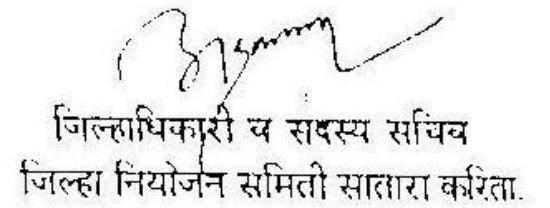 जिल्हाधिकारी व सदस्य सचिव
जिल्हा नियोजन समिती सातारा करिता.